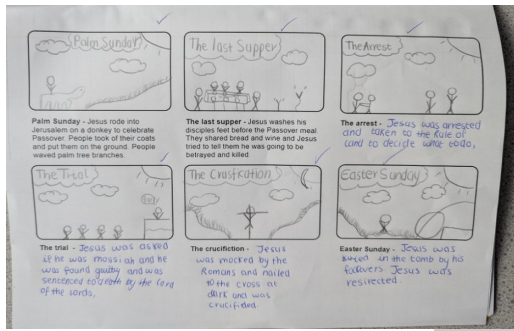 Palm Sunday
The last Supper
The Arrest
Palm Sunday - Jesus rode into
Jerusalem on a donkey to celebrate
Passover. People took of their coats
and put them on the ground. People
waved palm tree branches.
The last supper - Jesus washes his
disciples feet before the Passover meal.
They shared bread and wine and Jesus
tried to tell them he was going to be
betrayed and killed
The arrest - Jesus was arrested
and taken to the Rule of
Land to decide what todo.
The Trial
The Crusfixation
Easter Sunday
The trial - Jesus was asked
if he was mossiah and he
was found guilty and was
sentenced to death by the Lord
of the lords.
The crucifiction - Jesus
was mocked by the
Romans and nailed
to the cross at
dark and was
crucifided.
Easter Sunday - Jesus was
buried in the tomb by his
followers. Jesus was
resirected.